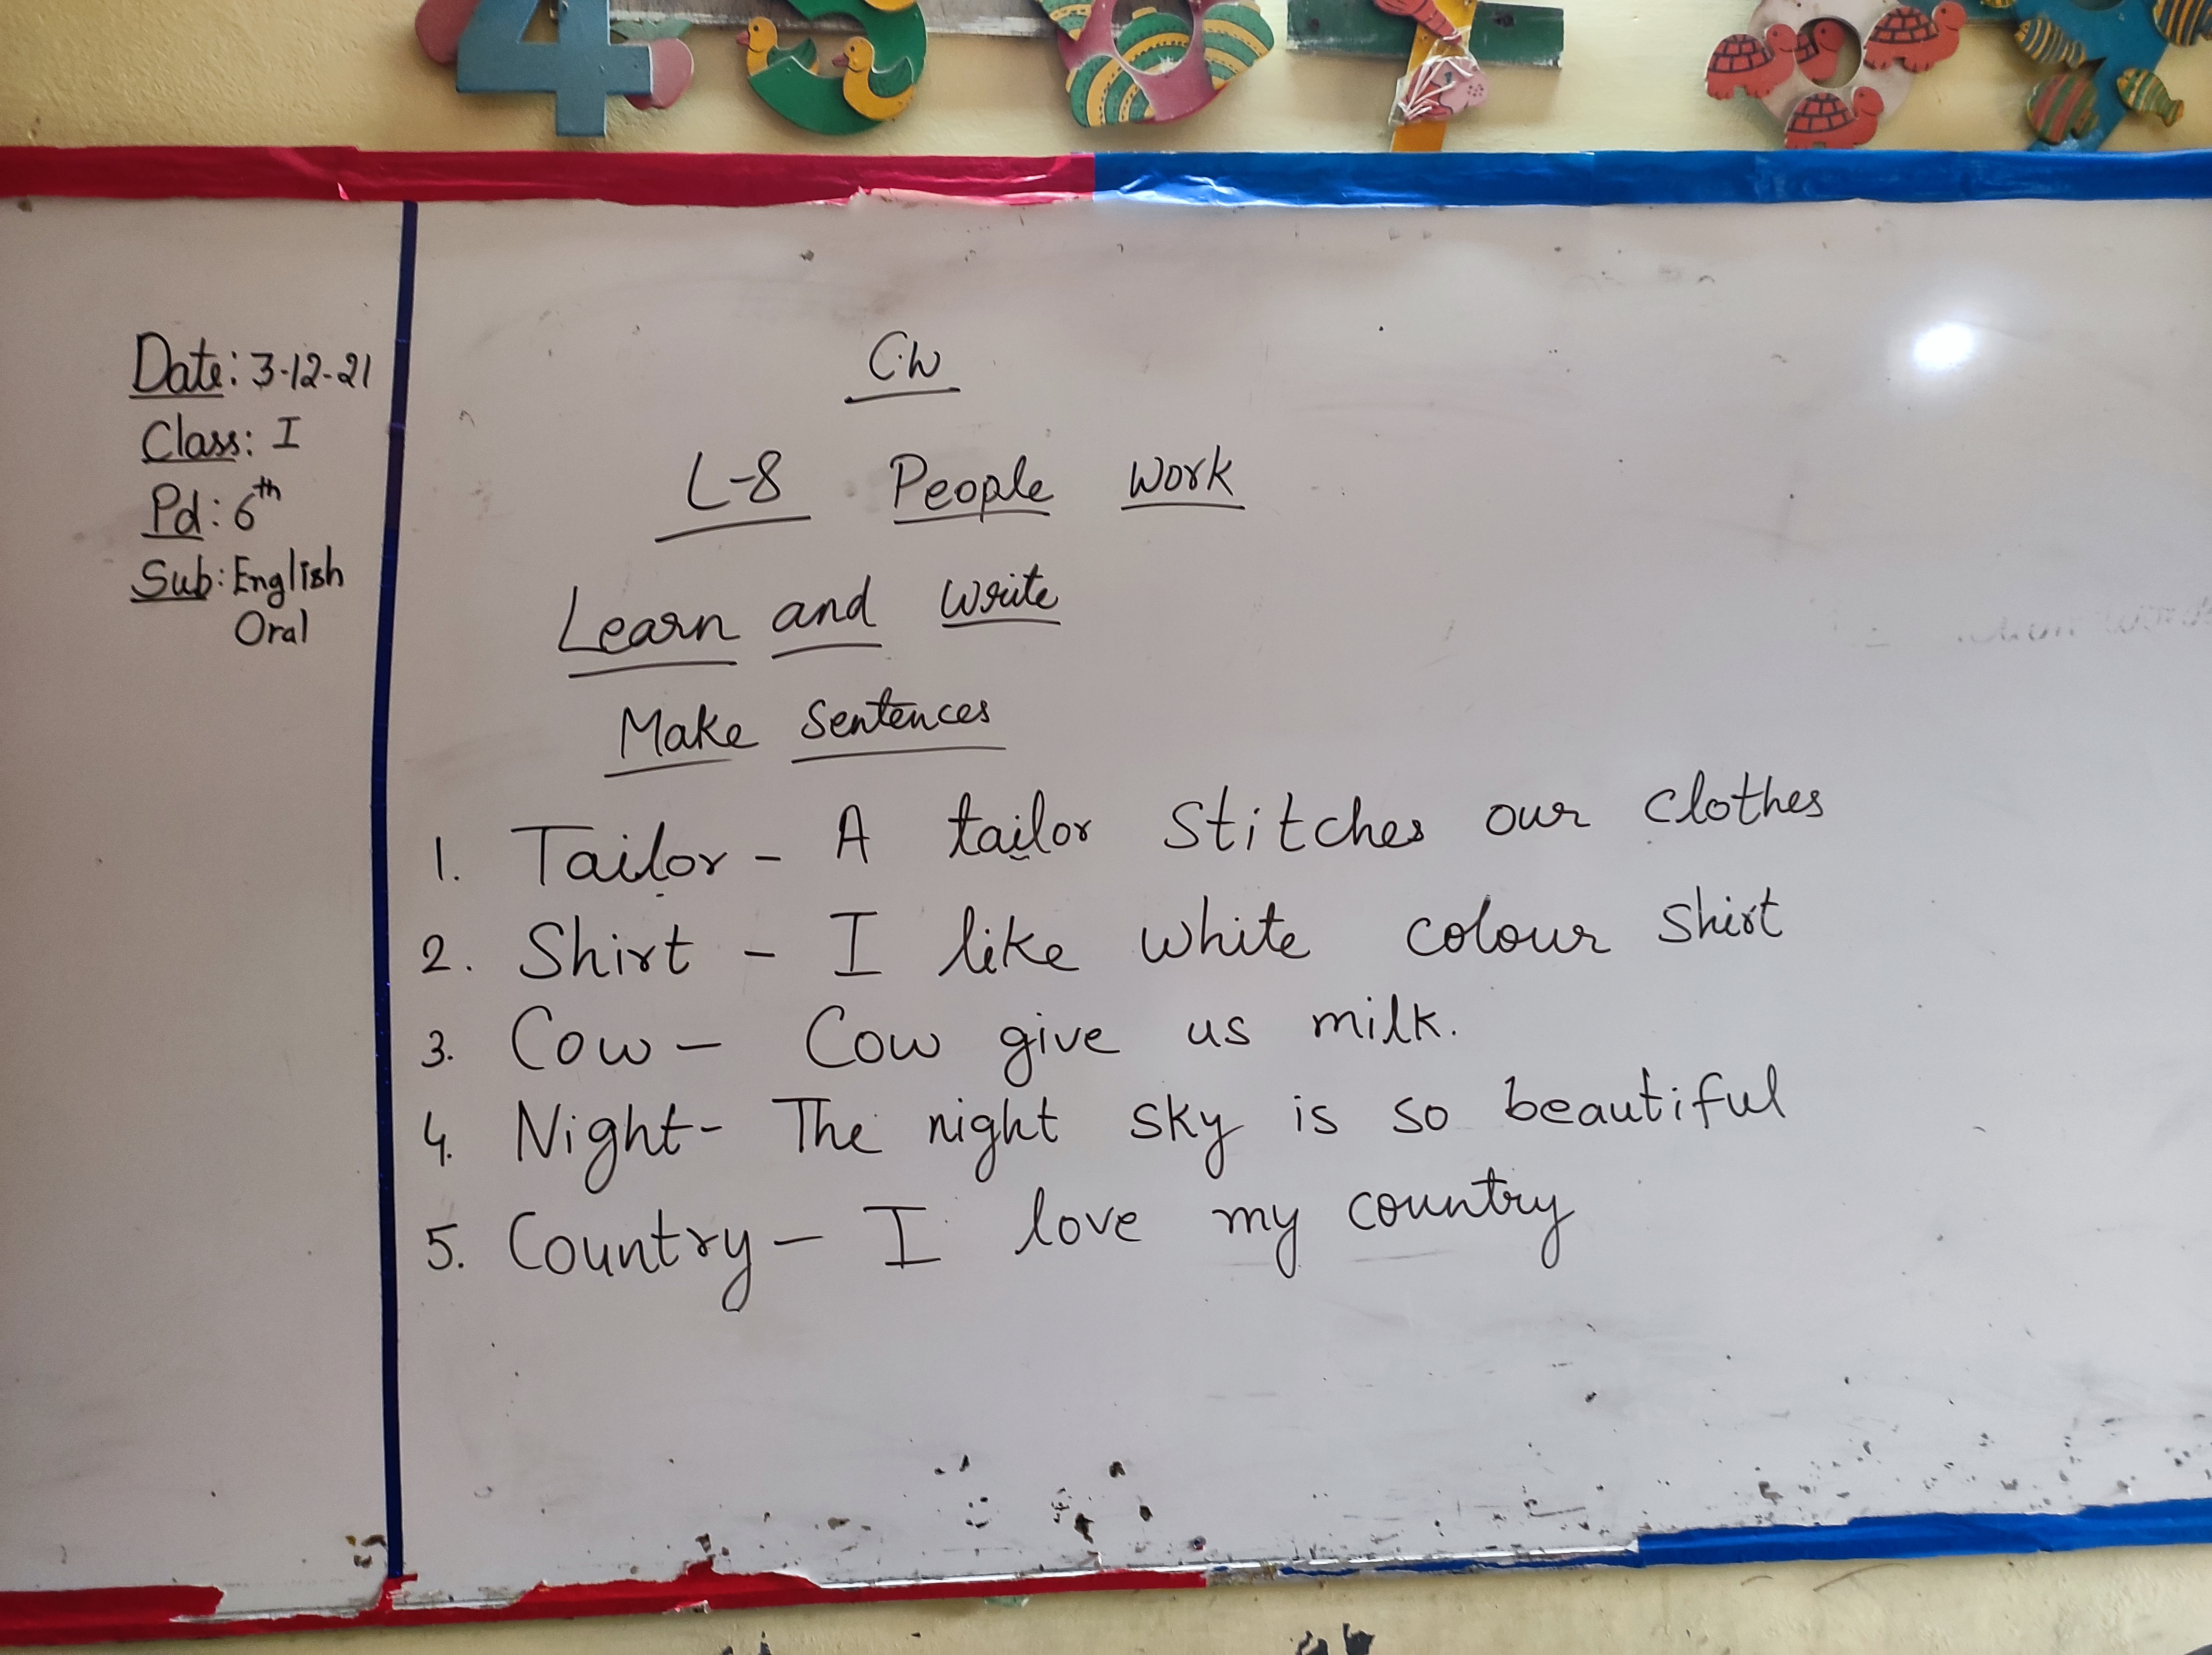 Date: 3-12-21
Class: I
Pd: 6th
Sub: English
Oral
C.W
L-8 People Work
Learn and Write
Make Sentences
1. Tailor - A tailor stitches our clothes
2. Shirt - I like white colour shirt
3. Cow - Cow give us milk.
4. Night - The night sky is so beautiful
5. Country - I love my country
4 5 6 7 8 9